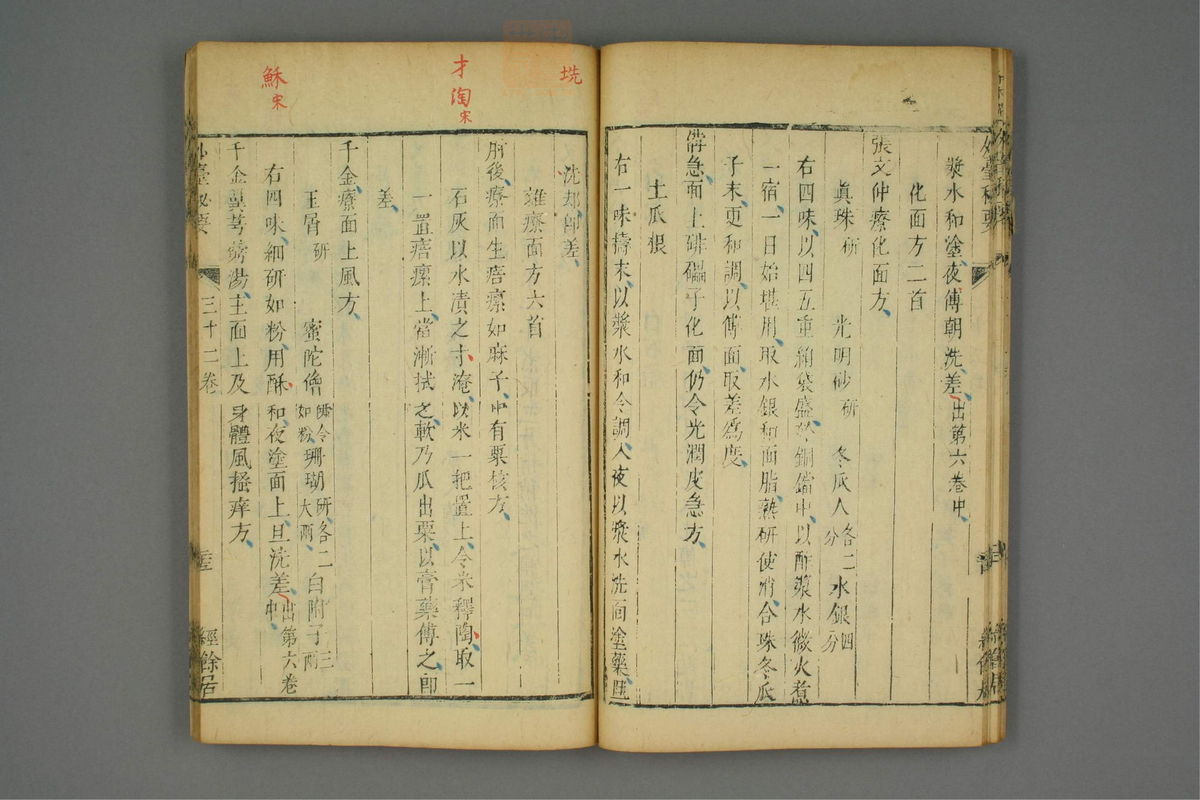 漿水和塗夜傅朝洗差出第六卷中
化面方二首
張文仲療化面方
眞珠研 光明砂研 冬瓜人各二分 水銀四分
右四味以四五重絹袋盛於銅鐺中以酢漿水微火煮
一宿一日始堪用取水銀和面脂熟研使消合珠冬瓜
子末更和調以傅面取差爲度
急面上䃀礧子化面仍令光潤皮急方
土瓜根
右一味擣末以漿水和令調人夜以漿水洗面塗藥
沈却卽差
雜療面方六首
肘後療面生㾦㿔如麻子中有粟核方
石灰以水漬之寸淹以米一把置上令米釋陶取一
一置㾦㿔上當漸拭之軟乃爪出粟以膏藥傅之卽
差
千金療面上風方
玉屑研 蜜陀僧如粉 珊瑚研各二大兩 白附子三兩
右四味細研如粉用酥和夜塗面上旦洗差出第六卷中
千金湯主面上及身體風搔痒方
外臺秘要 三十二卷 經餘居
外臺秘要
垙
才
淘宋
穌宋